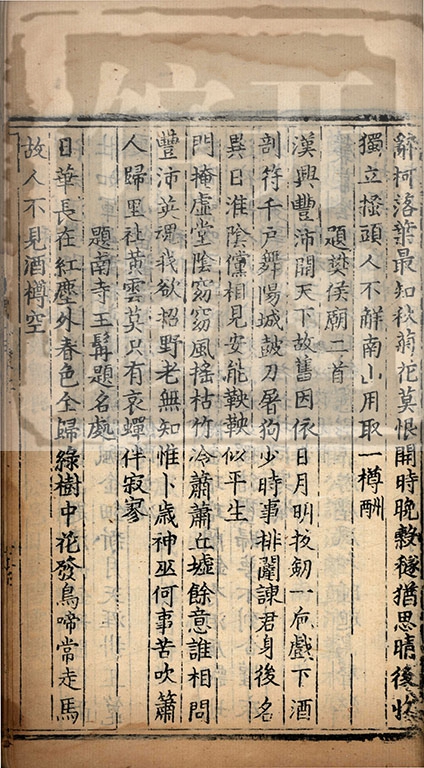 辭柯落葉最知秋菊花莫恨開時晚縠稼猶思晴後收
獨立搔頭人不觧南山用取一樽酬
題樊侯廟二首
漢興豐沛開天下故舊因依日月明拔劒一卮戲下酒
剖符千戸舞陽城鼓刀屠狗少時事排闥諫君身後名
異日淮隂儻相見安能鞅鞅似平生
門掩虛堂隂窈窈風搖枯竹冷蕭蕭丘墟餘意誰相問
豐沛英魂我欲招野老無知惟卜歲神巫何事苦吹簫
人歸里社黃雲莫只有哀蟬伴寂寥
題南寺王髯題名處
日華長在紅塵外春色全歸綠樹中花發鳥啼常走馬
故人不見酒樽空